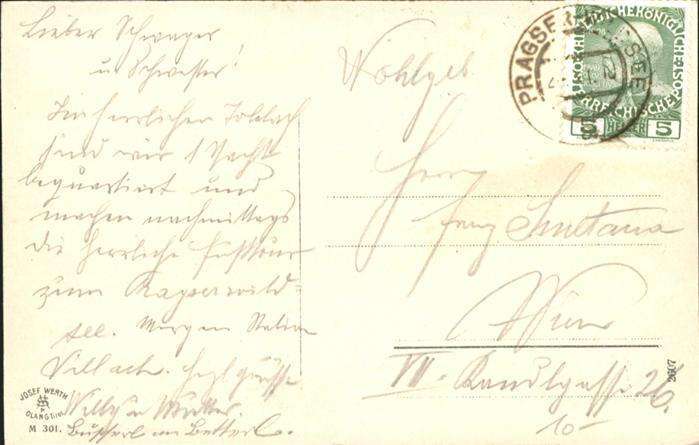 Lieber Schwager
u Schwester!
Im herrlichen Toblach
sind wir 1 Nacht
bequartiert und
machen nachmittags
die herrliche Fußtour
zum Pragserwild-
see. Morgen Station
Villach. Herzl. Grüsse
Willy u Mutter.
JOSEF WERTH
OLANG
M 301.
PRAGSER SEE
KAISERLICHE KÖNIGLICHE ÖSTERREICHISCHE
5 HELLER 5
Wohlgeb
Herrn
Franz Smetana
Wien
VII. Kandlgasse 26.
10-
2607